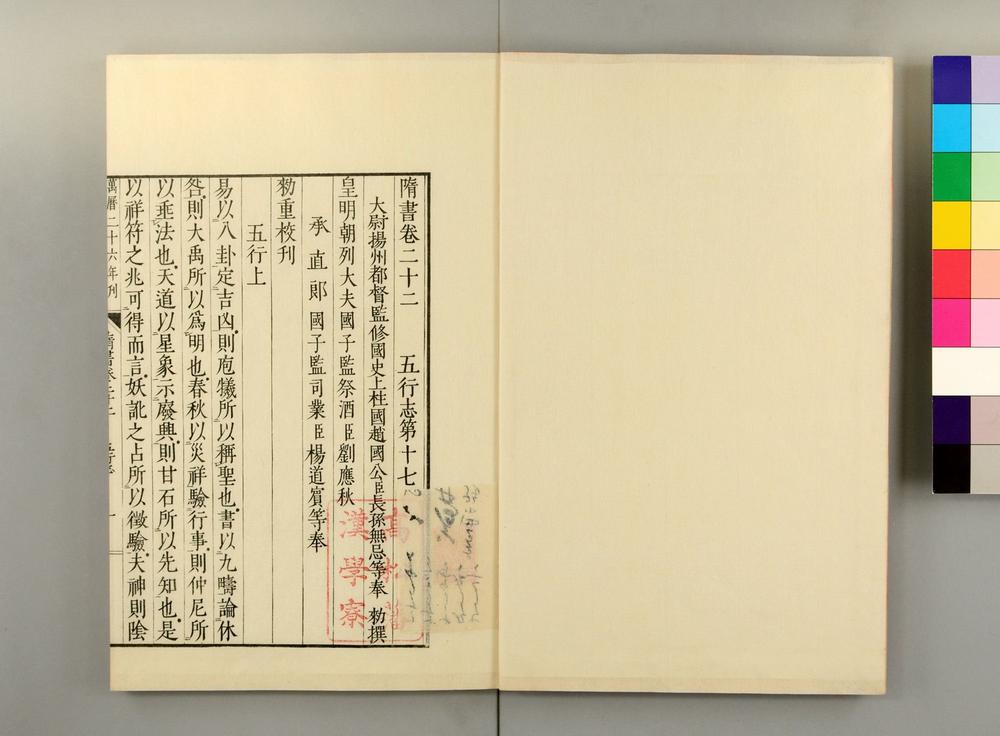 隋書卷二十二　五行志第十七
大尉揚州都督監修國史上柱國趙國公臣長孫無忌等奉　勑撰
皇明朝列大夫國子監祭酒臣劉應秋
承直郎國子監司業臣楊道賓等奉
勑重校刊
五行上
易以八卦定吉凶則庖犧所以稱聖也書以九疇論休
咎則大禹所以爲明也春秋以災祥驗行事則仲尼所
以垂法也天道以星象示廢興則甘石所以先知也是
以祥符之兆可得而言妖訛之占所以徵驗夫神則陰
萬曆二十六年刊　隋書卷二十二　五行志　一
漢學寮